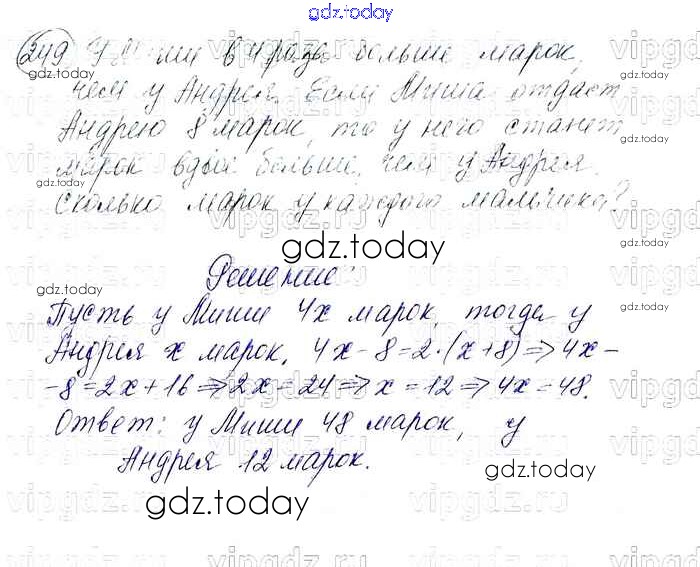 gdz.today
249 У Миши в 4 раза больше марок,
чем у Андрея. Если Миша отдаст
Андрею 8 марок, то у него станет
марок вдвое больше, чем у Андрея.
Сколько марок у каждого мальчика?
gdz.today
Решение:
Пусть у Миши 4х марок, тогда у
Андрея х марок. 4х-8=2·(х+8)⇒4х-
-8=2х+16⇒2х=24⇒х=12⇒4х=48.
Ответ: у Миши 48 марок, у
Андрея 12 марок.
gdz.today
gdz.today
vipgdz.ru